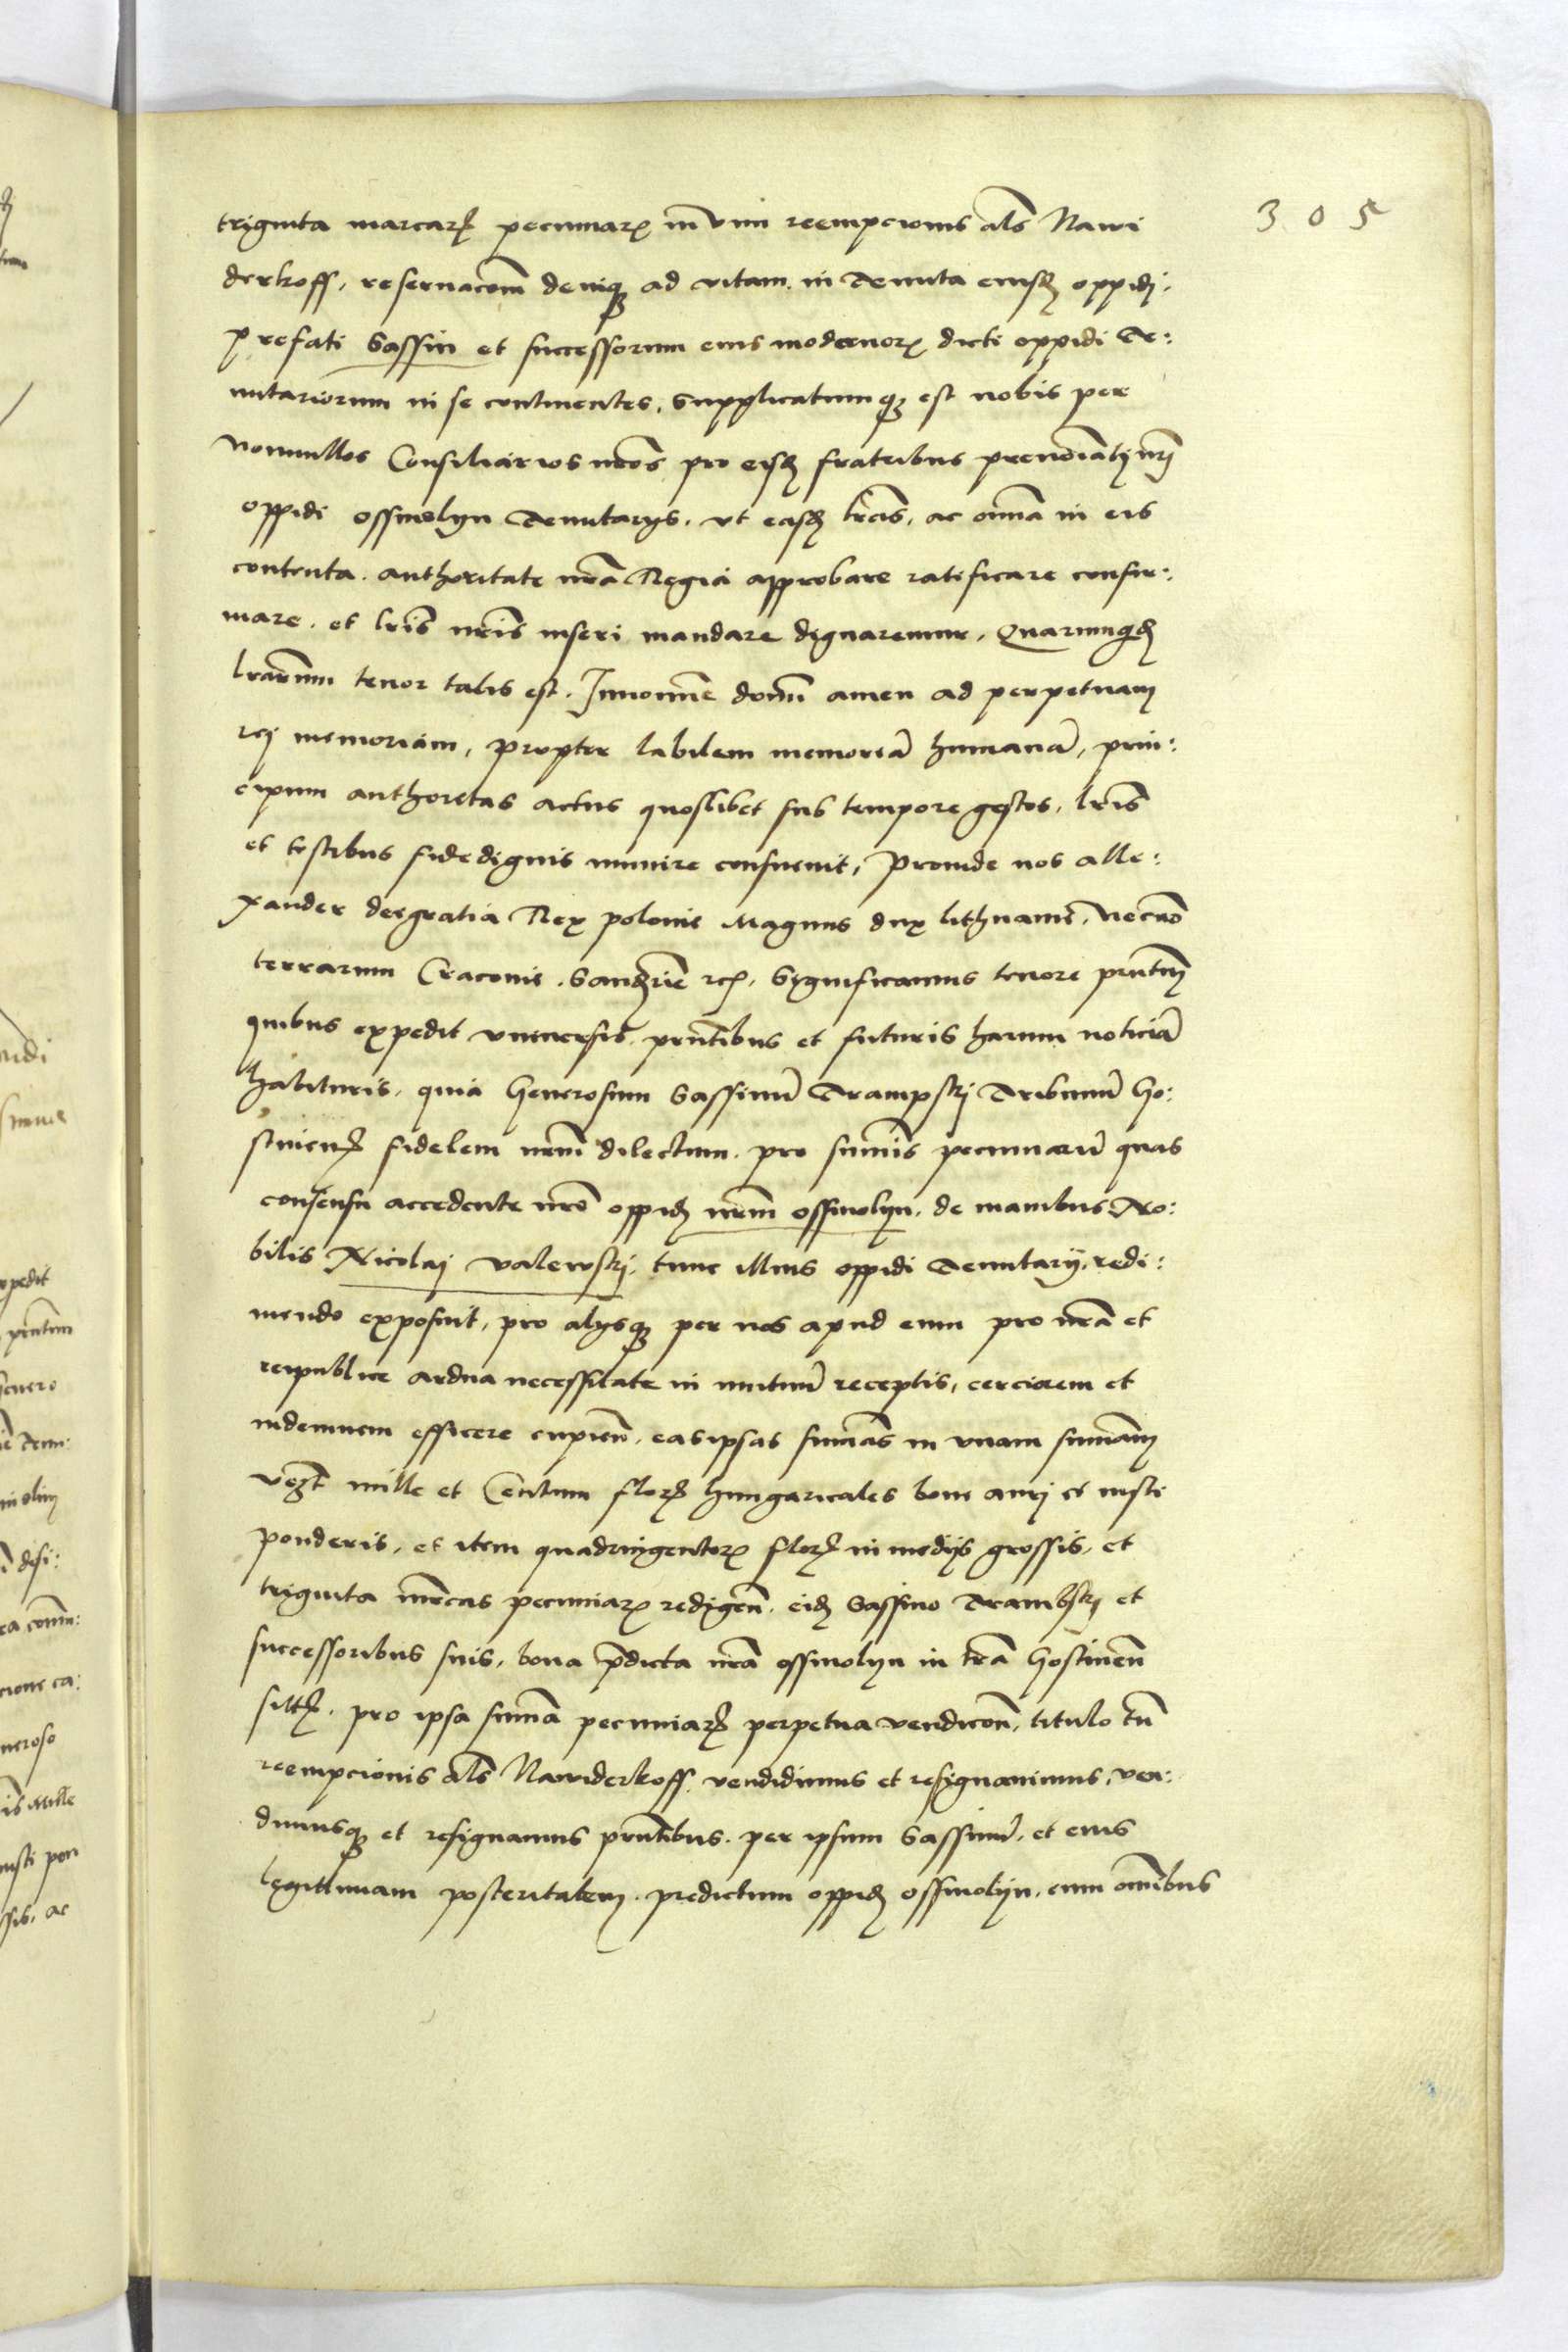 305
triginta marcarꝝ pecuniarꝝ in vim reempcionis als̄ Nawi
derkoff, reseruacōm deniqꝫ ad vitam in Tenuta eiusdꝫ oppidj,
prefati Sassin et successorum eius modernorꝝ dicti oppidi Te:
nutariorum in se continentes, Supplicatumqꝫ est nobis per
nonnullos Consiliarios nr̄os, pro eisdꝫ fratribus prenoīatꝭ nrj̄
oppidi ossmolyn Tenutarys, vt easdꝫ lr̄as, ac om̄ia in eis
contenta, authoritate nr̄a Regia approbare ratificare confir:
mare, et lrīs nrīs inseri mandare dignaremur, Quarumqdꝫ
lrārum tenor talis est. Innomīe domī amen ad perpetuam
rej memoriam, propter labilem memoriā humanā, prin:
cipum authoritas actus quoslibet sub tempore gestos, lrīs
et testibus fidedignis munire consueuit, Proinde nos alle:
xander deigratia Rex polonie Magnus dux lithuanie, Necnō
terrarum Cracouie, Sandꝫrie rc̄ꝫ, Significamus tenore pn̄tiꝫ
quibus expedit vniuersis, pn̄tibus et futuris harum noticiā
habituris, quia Generosum Sassinū Trampskj Tribunū Go:
stinenꝫ fidelem nrm̄ dilectum, pro sum̄is pecuniarū quas
consensu accedente nrō oppidꝫ nrm̄ ossmolyn, de manibus No:
bilis Nicolaj Valewskj, tunc illius oppidi Tenutarij, redi:
mendo exposuit, pro alysqꝫ per nos apud eum pro nrā et
reipublice ardua necessitate in mutuū receptis, cerciorem et
indemnem efficere cupien̄, easipsas sum̄as in vnam sum̄am
vꝫt mille et Centum florꝫ hungaricales boni aurj et iusti
ponderis, et item quadringentorꝝ florꝫ in medijs grossis, et
triginta mr̄cas pecuniarꝝ redigen̄, eidꝫ Sassino Trambskj et
successoribus suis, bona p̄dicta nrā ossmolyn in trā Gostinen̄
sittꝫ, pro ipsa sum̄a pecuniarꝝ perpetua vendicōn, titulo tn̄
reempcionis als̄ Nawiderkoff vendidimus et resignauimus, ven:
dimusqꝫ et resignamus pn̄tibus, per ipsum Sassinū, et eius
legittimam posteritatem, predictum oppidꝫ ossmolyn, cum om̄ibus